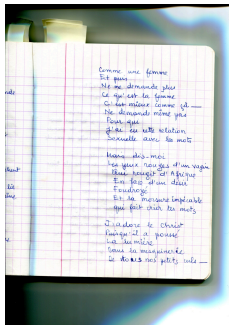 Comme une femme
Et puis
Ne me demande plus
Ce qu'est la femme
C'est mieux comme çà —
Ne demande même pas
Pour que
J'ai eu cette relation
Sexuelle avec les mots

des-moi
Les yeux rouges d'un vagin
rougit d'Afrique
En face d'un
Foudroyé
Et la morsure implacable
qui fait crier les mots

J'adore le Christ
Puisqu'il a poussé
La lumière
Dans la maquinerie
De tous nos petits culs —